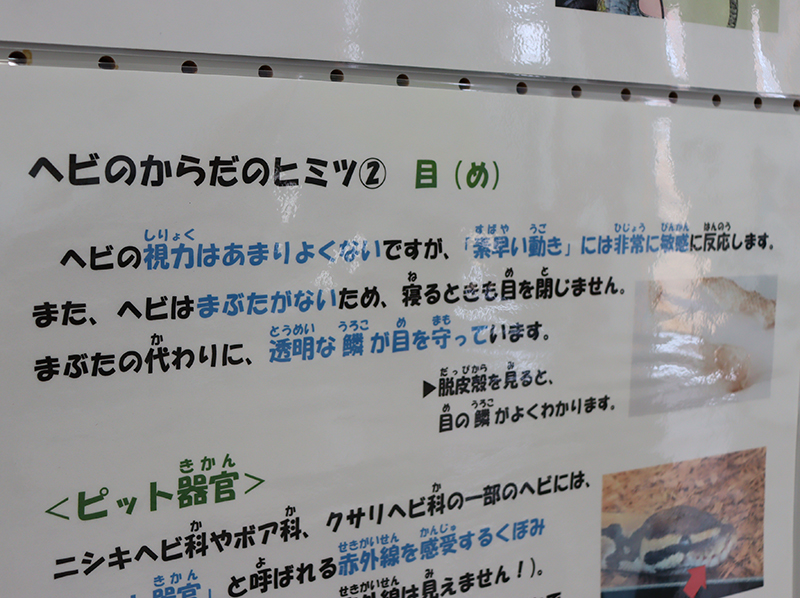 ヘビのからだのヒミツ② 目(め)
ヘビの視力はあまりよくないですが、「素早い動き」には非常に敏感に反応します。
また、ヘビはまぶたがないため、寝るときも目を閉じません。
まぶたの代わりに、透明な鱗が目を守っています。
▶脱皮殻を見ると、
目の鱗がよくわかります。
<ピット器官>
ニシキヘビ科やボア科、クサリヘビ科の一部のヘビには、
器官」と呼ばれる赤外線を感受するくぼみ
外線は見えません!)。